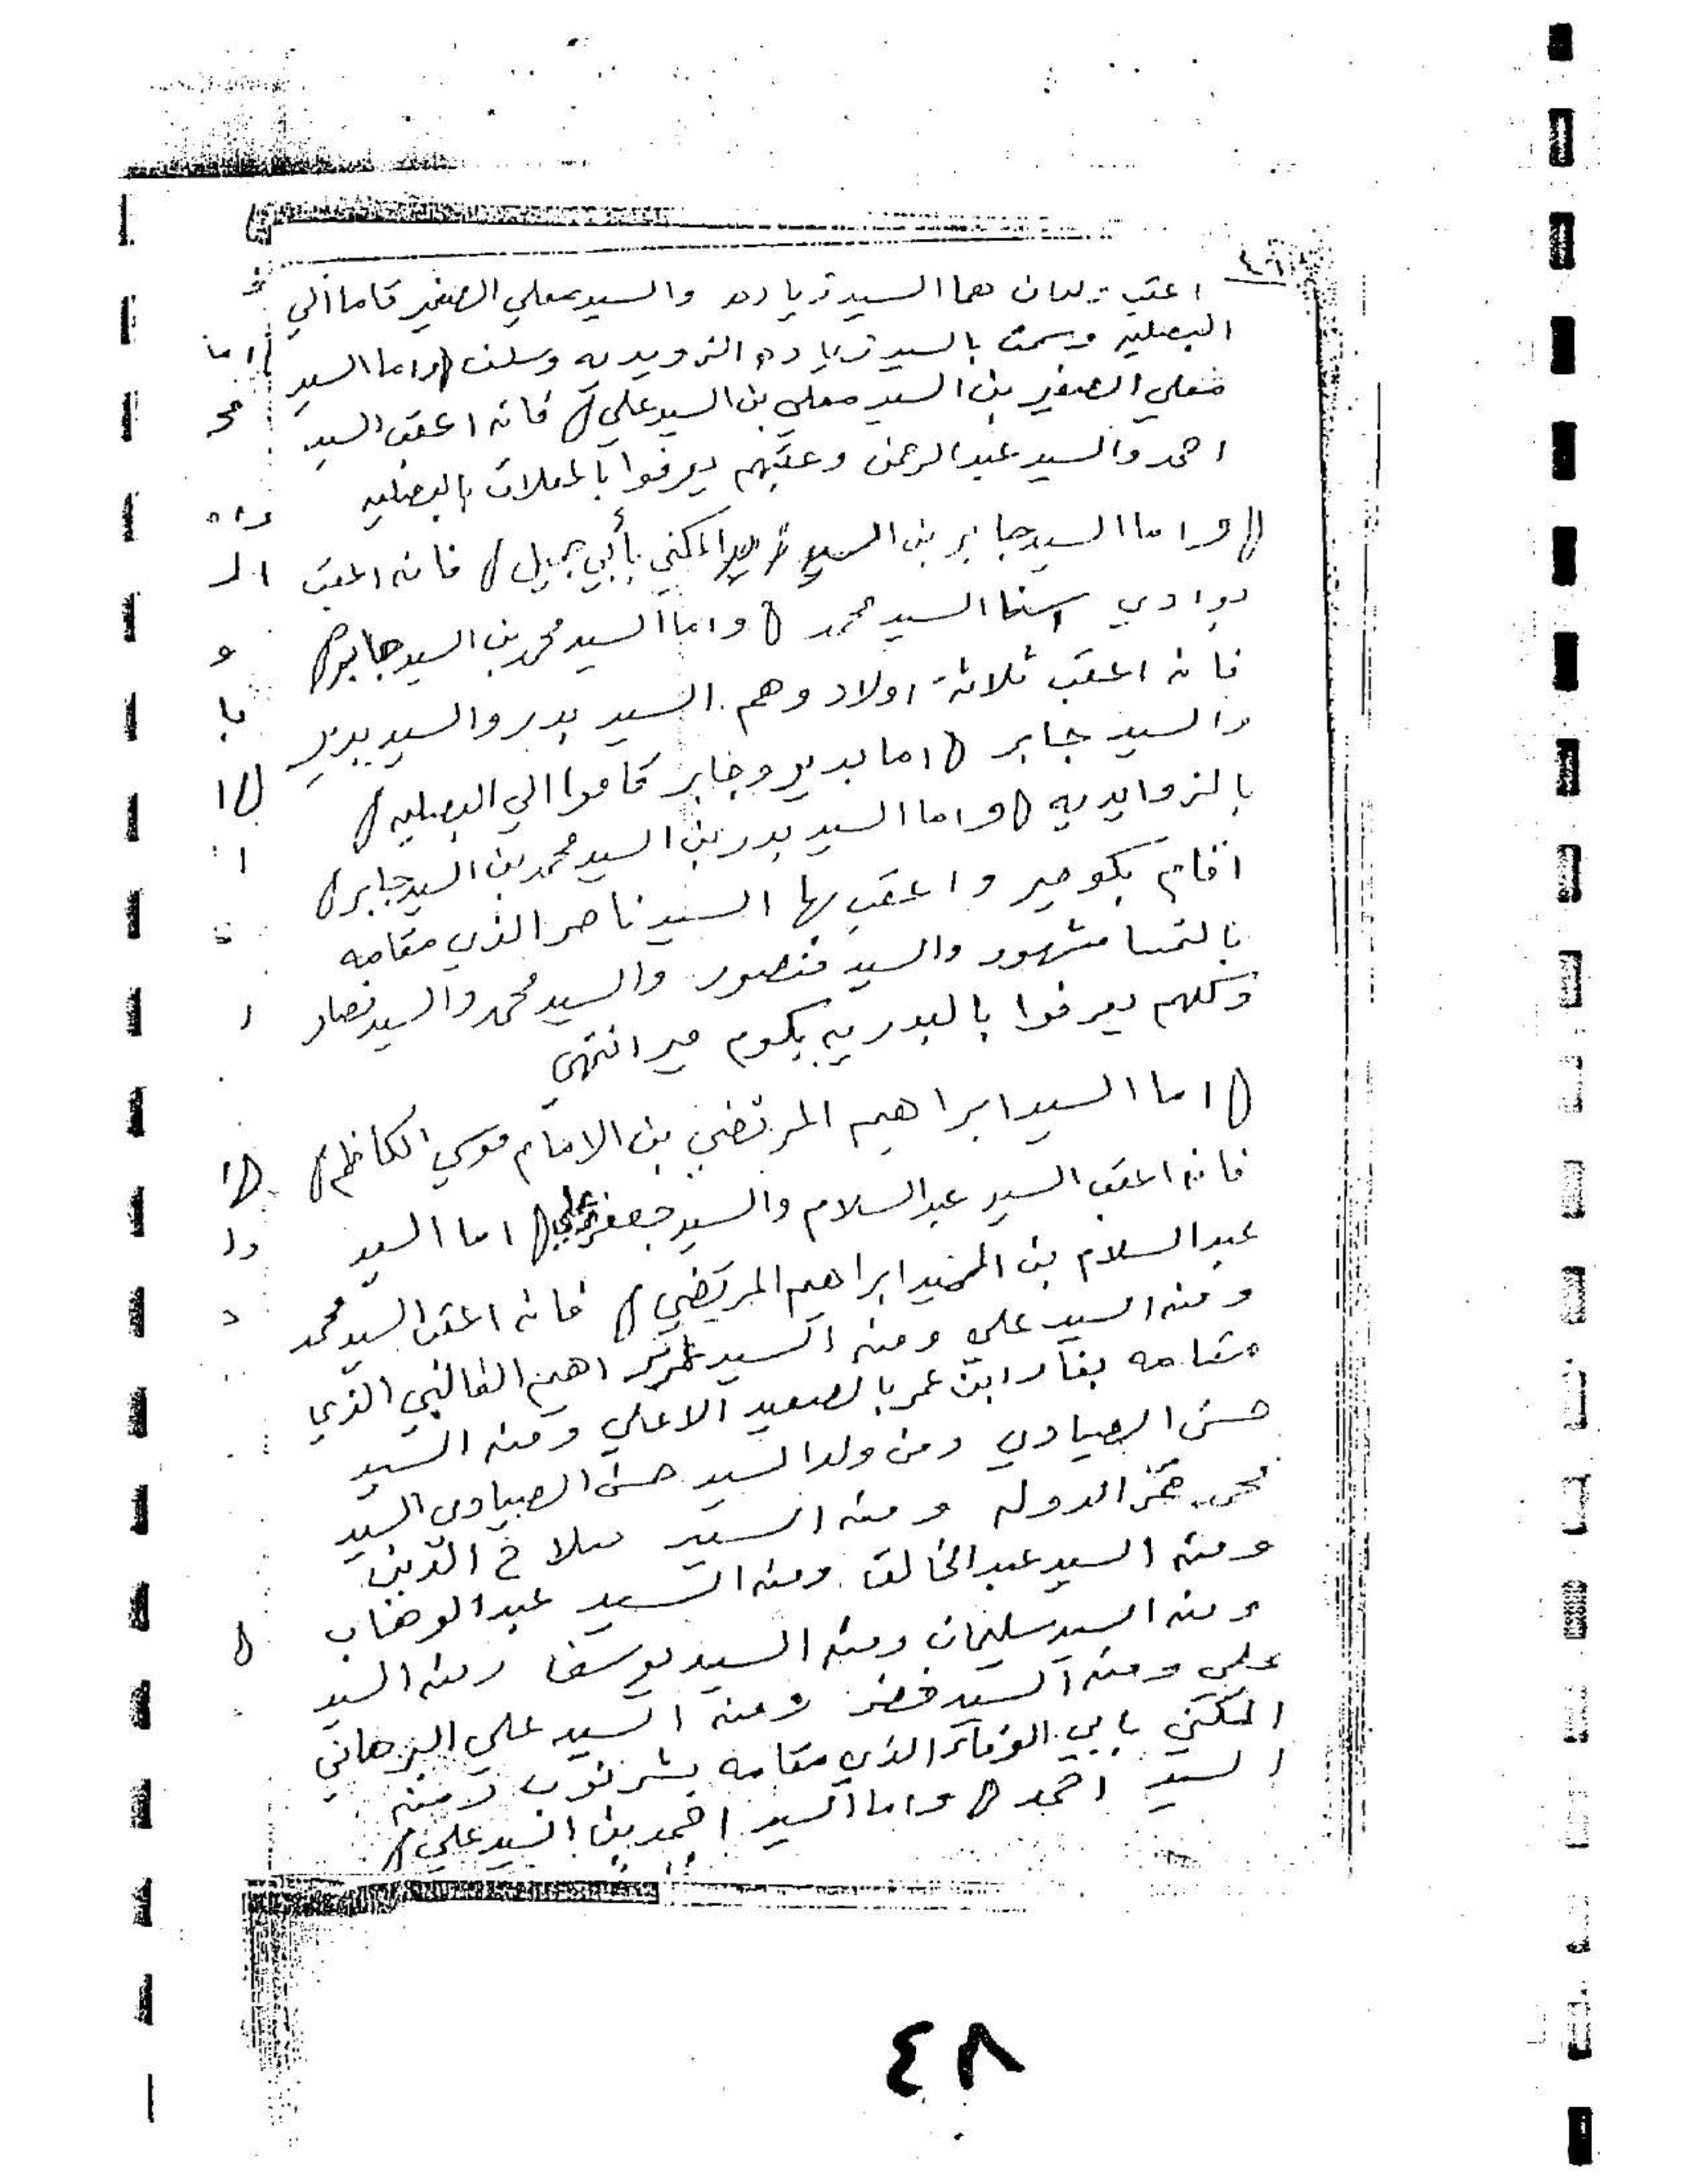 اعقب ولدان هما السيد زياده والسيد معلي الصغير قاما الي
البصليه وسمت بالسيد زياده الزويديه وسلف واما السيد
معلي الصغير بن السيد معلي بن السيد علي فانه اعقب السيد
احمد والسيد عبدالرحمن وعقبهم يعرفوا بالمعلات بالبصليه
واما السيد جابر بن السيد المكني بأبي جميل فانه اعقب
بوادي اسنا السيد محمد واما السيد محمد بن السيد جابر
فانه اعقب ثلاثة اولاد وهم السيد بدر والسيد بدير
والسيد جابر اما بدير وجابر قاموا الي البصليه
بالزوايديه واما السيد بدر بن السيد محمد بن السيد جابر
اقام بكومير واعقب بها السيد ناصر الذي مقامه
بالنمسا مشهور والسيد منصور والسيد محمد والسيد نصار
وكلهم يعرفوا بالبدريه بكوم مير انتهي
اما السيد ابراهيم المرتضي بن الامام موسي الكاظم
فانه اعقب السيد عبدالسلام والسيد جعفر علي اما السيد
عبدالسلام بن السيد ابراهيم المرتضي فانه اعقب السيد محمد
ومنه السيد علي ومنه السيد الذي
مقامه بغار ابن عمر بالصعيد الاعلي ومنه السيد
حسن الصيادي ومن ولد السيد حسن الصيادي السيد
محمد عز الدوله ومنه السيد صلاح الدين
ومنه السيد عبدالخالق ومنه السيد عبدالوهاب
ومنه السيد سليمان ومنه السيد يوسف ومنه السيد
علي ومنه السيد خضر ومنه السيد علي البرهاني
المكني بابي الوفا الذي مقامه بشرنوب ومنه
السيد احمد واما السيد احمد بن السيد علي
٤٨